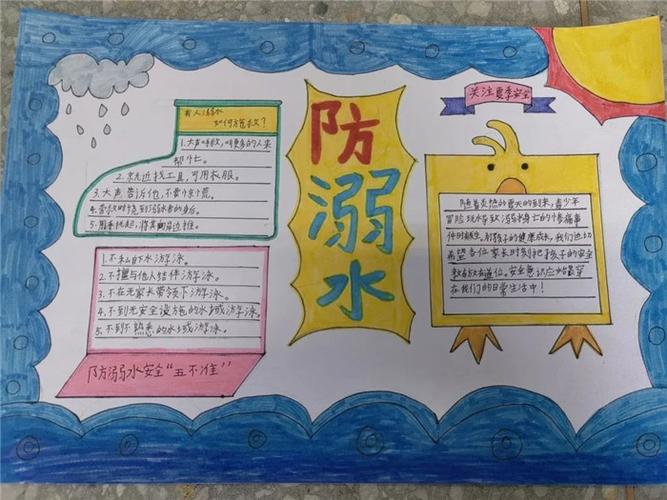 防溺水
关注夏季安全
有人溺水
如何施救?
1.大声呼救,叫更多的人来
帮忙。
2.就近找工具,可用衣服。
3.大声告诉他,不要惊慌。
4.营救时绕到溺水者的身后。
5.用手托起,将其向岸边推。
1.不私自下水游泳。
2.不擅与他人结伴游泳。
3.不在无家长带领下游泳。
4.不到无安全设施的水域游泳。
5.不到不熟悉的水域游泳。
防溺水安全“五不准”
随着炎热的夏天的到来,青少年
冒险玩水导致溺水身亡的个事
件时有发生,为孩子的健康成长,我们迫切
希望各位家长时刻把孩子的安全
教育放在首位,安全意识应
在我们的日常生活中!